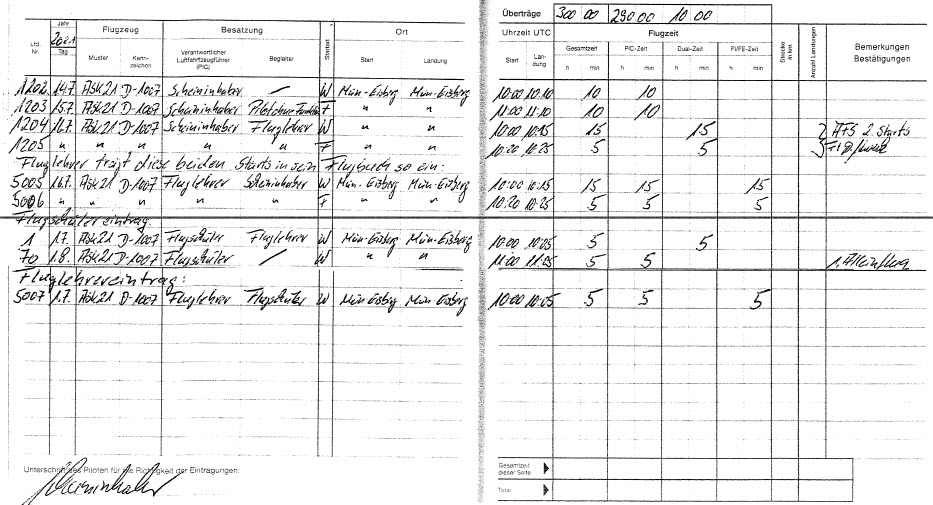 Überträge 300 00 290 00 10 00
Jahr 2021
Flugzeug Besatzung Ort
Uhrzeit UTC Flugzeit
Lfd. Nr. Tag Muster Kenn-zeichen Verantwortlicher Luftfahrzeugführer (PIC) Begleiter Startart Start Landung
Start Lan-dung Gesamtzeit PIC-Zeit Dual-Zeit FI/FE-Zeit Strecke in km Anzahl Landungen Bemerkungen Bestätigungen
h min h min h min h min
1202 14.7. ASK21 D-1007 Scheininhaber — W Mün-Eisberg Mün-Eisberg 10:00 10:10 10 10
1203 15.7. ASK21 D-1007 Scheininhaber F " " 11:00 11:10 10 10
1204 16.7. ASK21 D-1007 Scheininhaber Fluglehrer W " " 10:00 10:15 15 15 2 Starts
1205 " " " " " F " " 10:20 10:25 5 5
Fluglehrer trägt diese beiden Starts in sein Flugbuch so ein:
5005 16.7. ASK21 D-1007 Fluglehrer Scheininhaber W Mün-Eisberg Mün-Eisberg 10:00 10:15 15 15 15
5006 " " " " " F " " 10:20 10:25 5 5 5
Flugschülereintrag
1 1.7. ASK21 D-1007 Flugschüler Fluglehrer W Mün-Eisberg Mün-Eisberg 10:00 10:05 5 5
70 1.8. ASK21 D-1007 Flugschüler — W " " 11:00 11:05 5 5 1. Alleinflug
Fluglehrereintrag:
5007 1.7. ASK21 D-1007 Fluglehrer Flugschüler W Mün-Eisberg Mün-Eisberg 10:00 10:05 5 5 5
Unterschrift des Piloten für die Richtigkeit der Eintragungen:
Scheininhaber
Gesamtzeit dieser Seite
Total